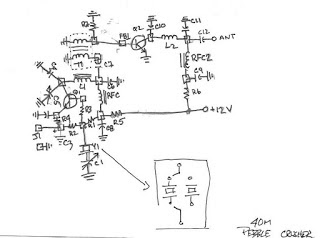 Q2
C10
C11
C12
ANT
FB1
L2
RFC2
T1
C7
C9
L1
RFC
R6
+12V
Q1
R3
R4
R2
R1
R5
C8
J1
C3
Y1
C1
40M
PEBBLE CRUSHER